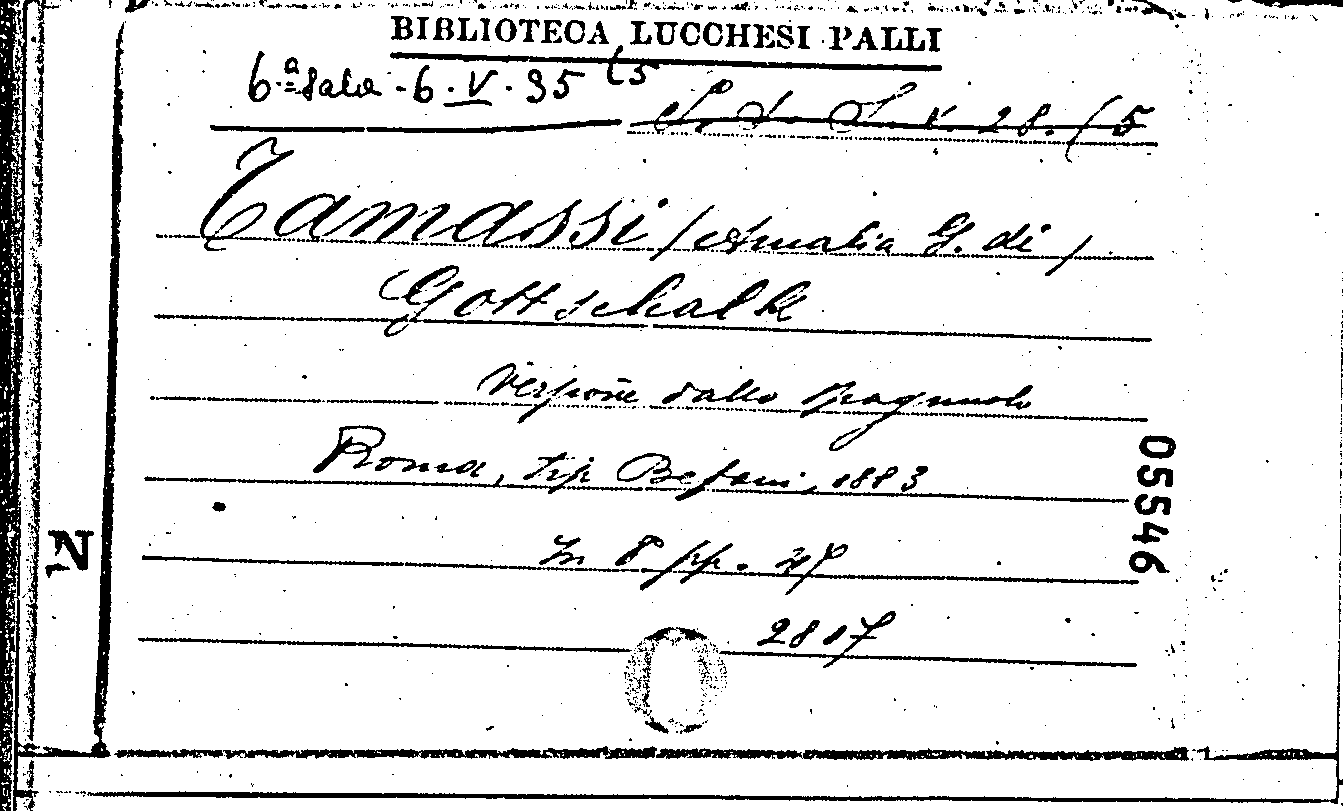 BIBLIOTECA LUCCHESI PALLI
6.ª Sala - 6. V. 35 (5
S. S. V. 28. (5
Tamassi (Amalia G. di)
Gottschalk
Versione dallo spagnuolo
Roma, tip Befani, 1883
In 8. pp.
2817
05546
N